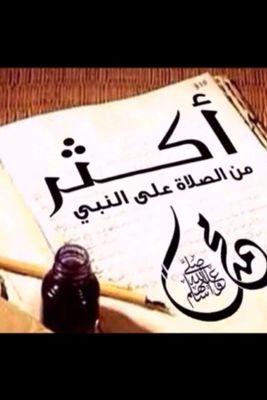 أكثر
من الصلاة على النبي
محمد
صلى الله عليه وسلم